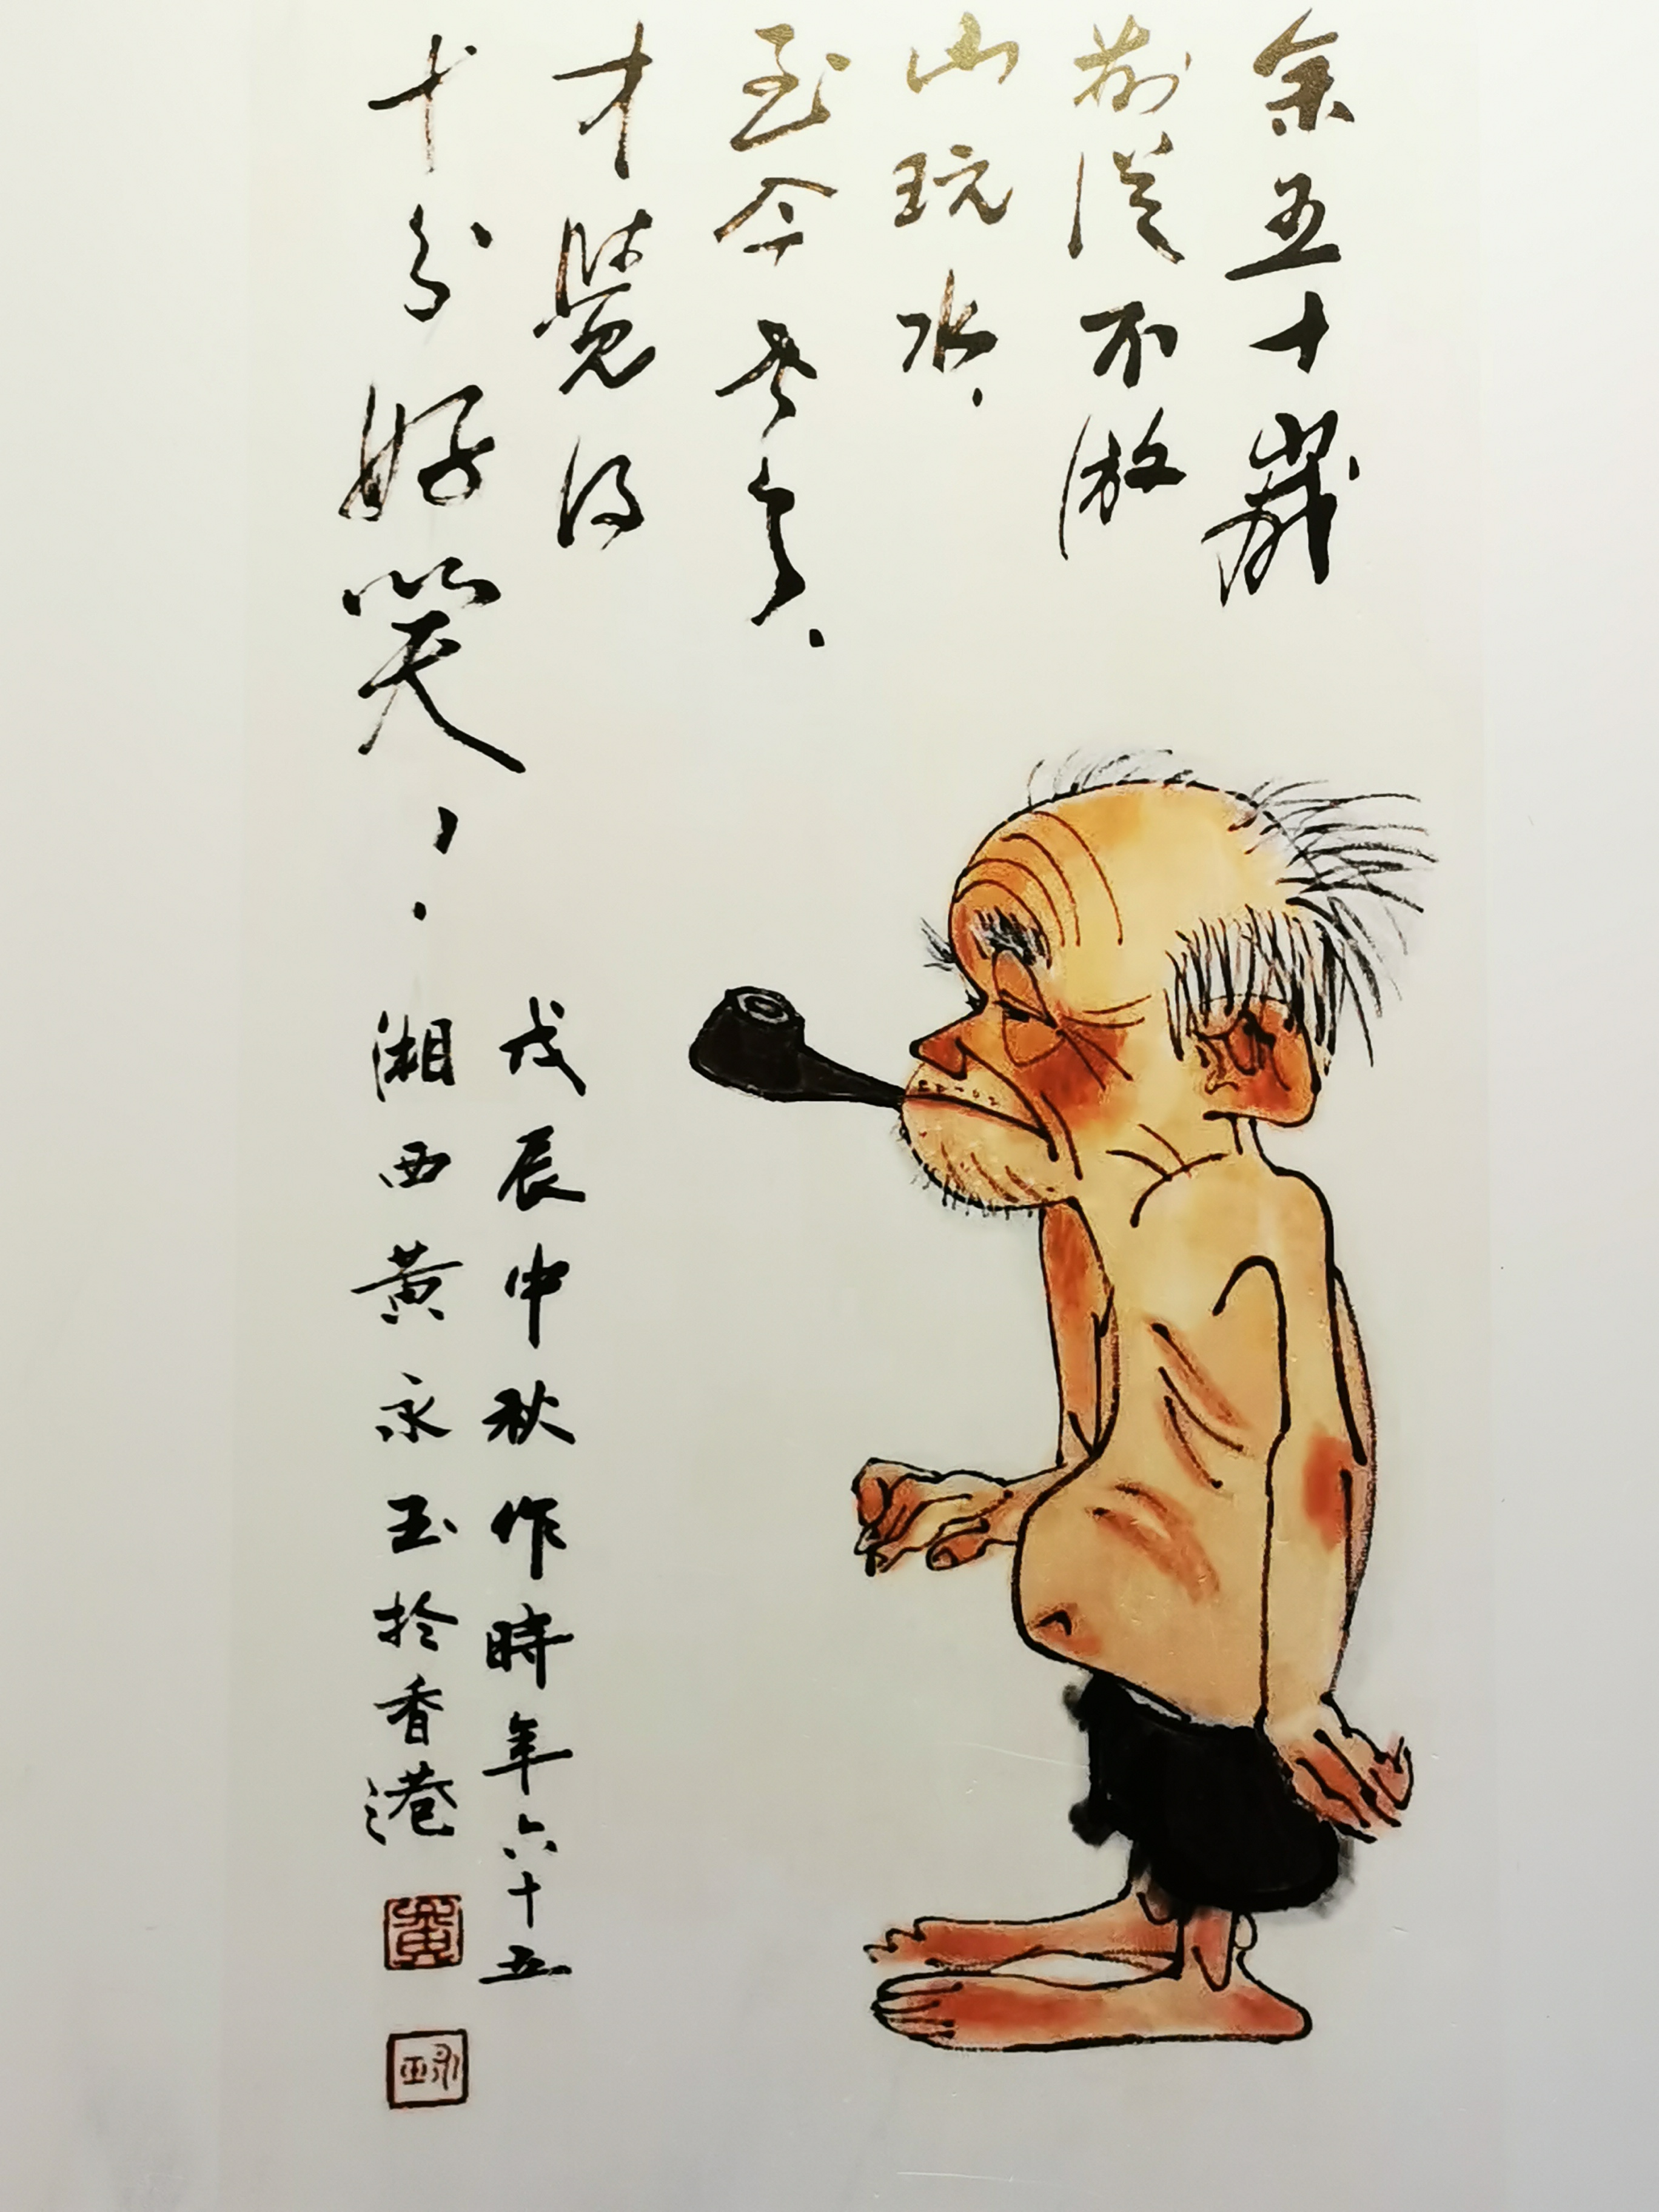 余五十歲
前從不游
山玩水，
至今老矣，
才覺得
十分好笑！
戊辰中秋作時年六十五
湘西黄永玉於香港
黃
永玉